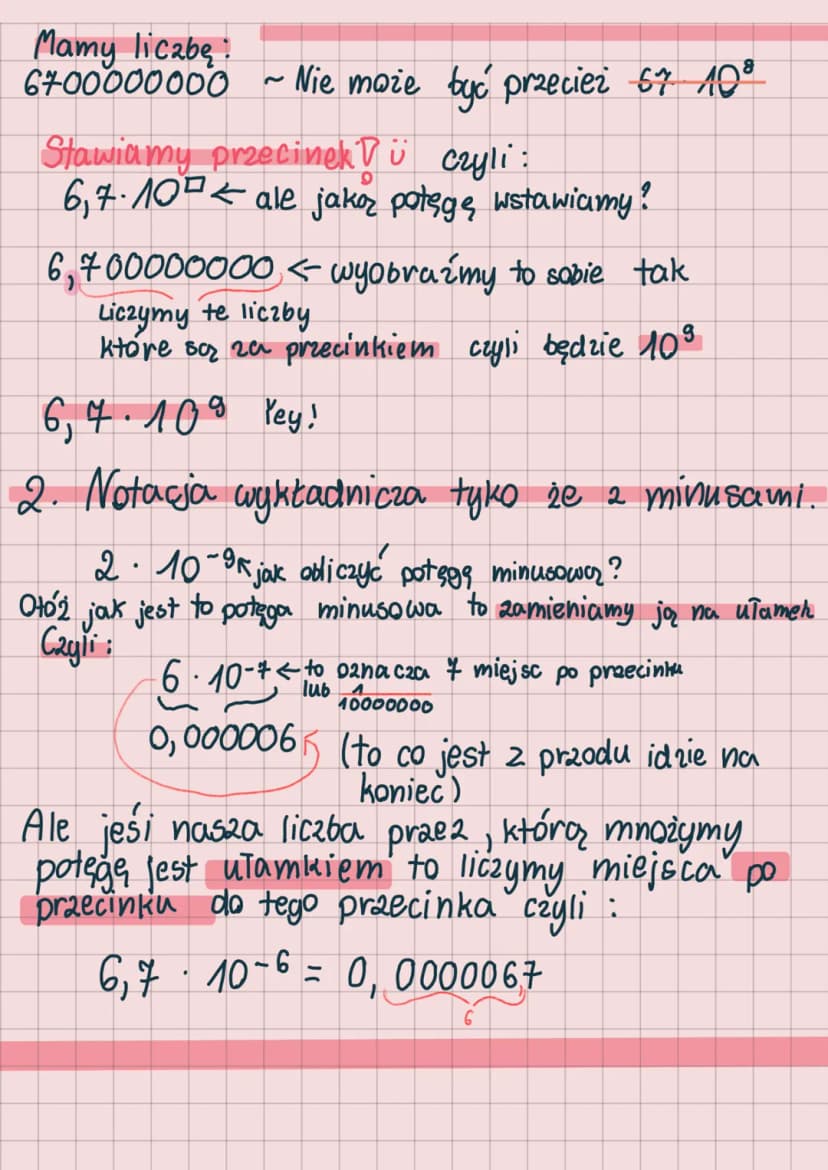 Mamy liczbę:
6700000000 ~ Nie może być przecież 67 · 10⁸
Stawiamy przecinek! ü czyli:
6,7 · 10□ ← ale jaką potęgę wstawiamy?
6,700000000 ← wyobraźmy to sobie tak
Liczymy te liczby
które są za przecinkiem czyli będzie 10⁹
6,7 · 10⁹ Yey!
2. Notacja wykładnicza tyko że z minusami.
2 · 10⁻⁹ ↖ jak obliczyć potęgę minusową?
Otóż jak jest to potęga minusowa to zamieniamy ją na ułamek
Czyli:
6 · 10⁻⁷ ← to oznacza 7 miejsc po przecinku
lub 1/10000000
0,000006 (to co jest z przodu idzie na
koniec)
Ale jeśi nasza liczba przez, którą mnożymy
potęgę jest ułamkiem to liczymy miejsca po
przecinku do tego przecinka czyli:
6,7 · 10⁻⁶ = 0,000006,7
6